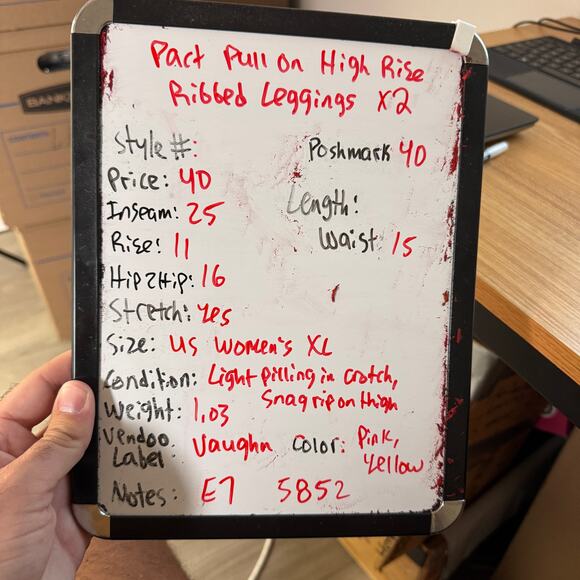 Pact Pull on High Rise
Ribbed Leggings x2
Style #:
Poshmark 40
Price: 40
Length:
Inseam: 25
Waist 15
Rise: 11
Hip2Hip: 16
Stretch: yes
Size: US Women's XL
Condition: Light pilling in crotch,
Snag rip on thigh
Weight: 1.03
Vendoo Label: Vaughn Color: Pink,
Yellow
Notes: E7 5852
BANK